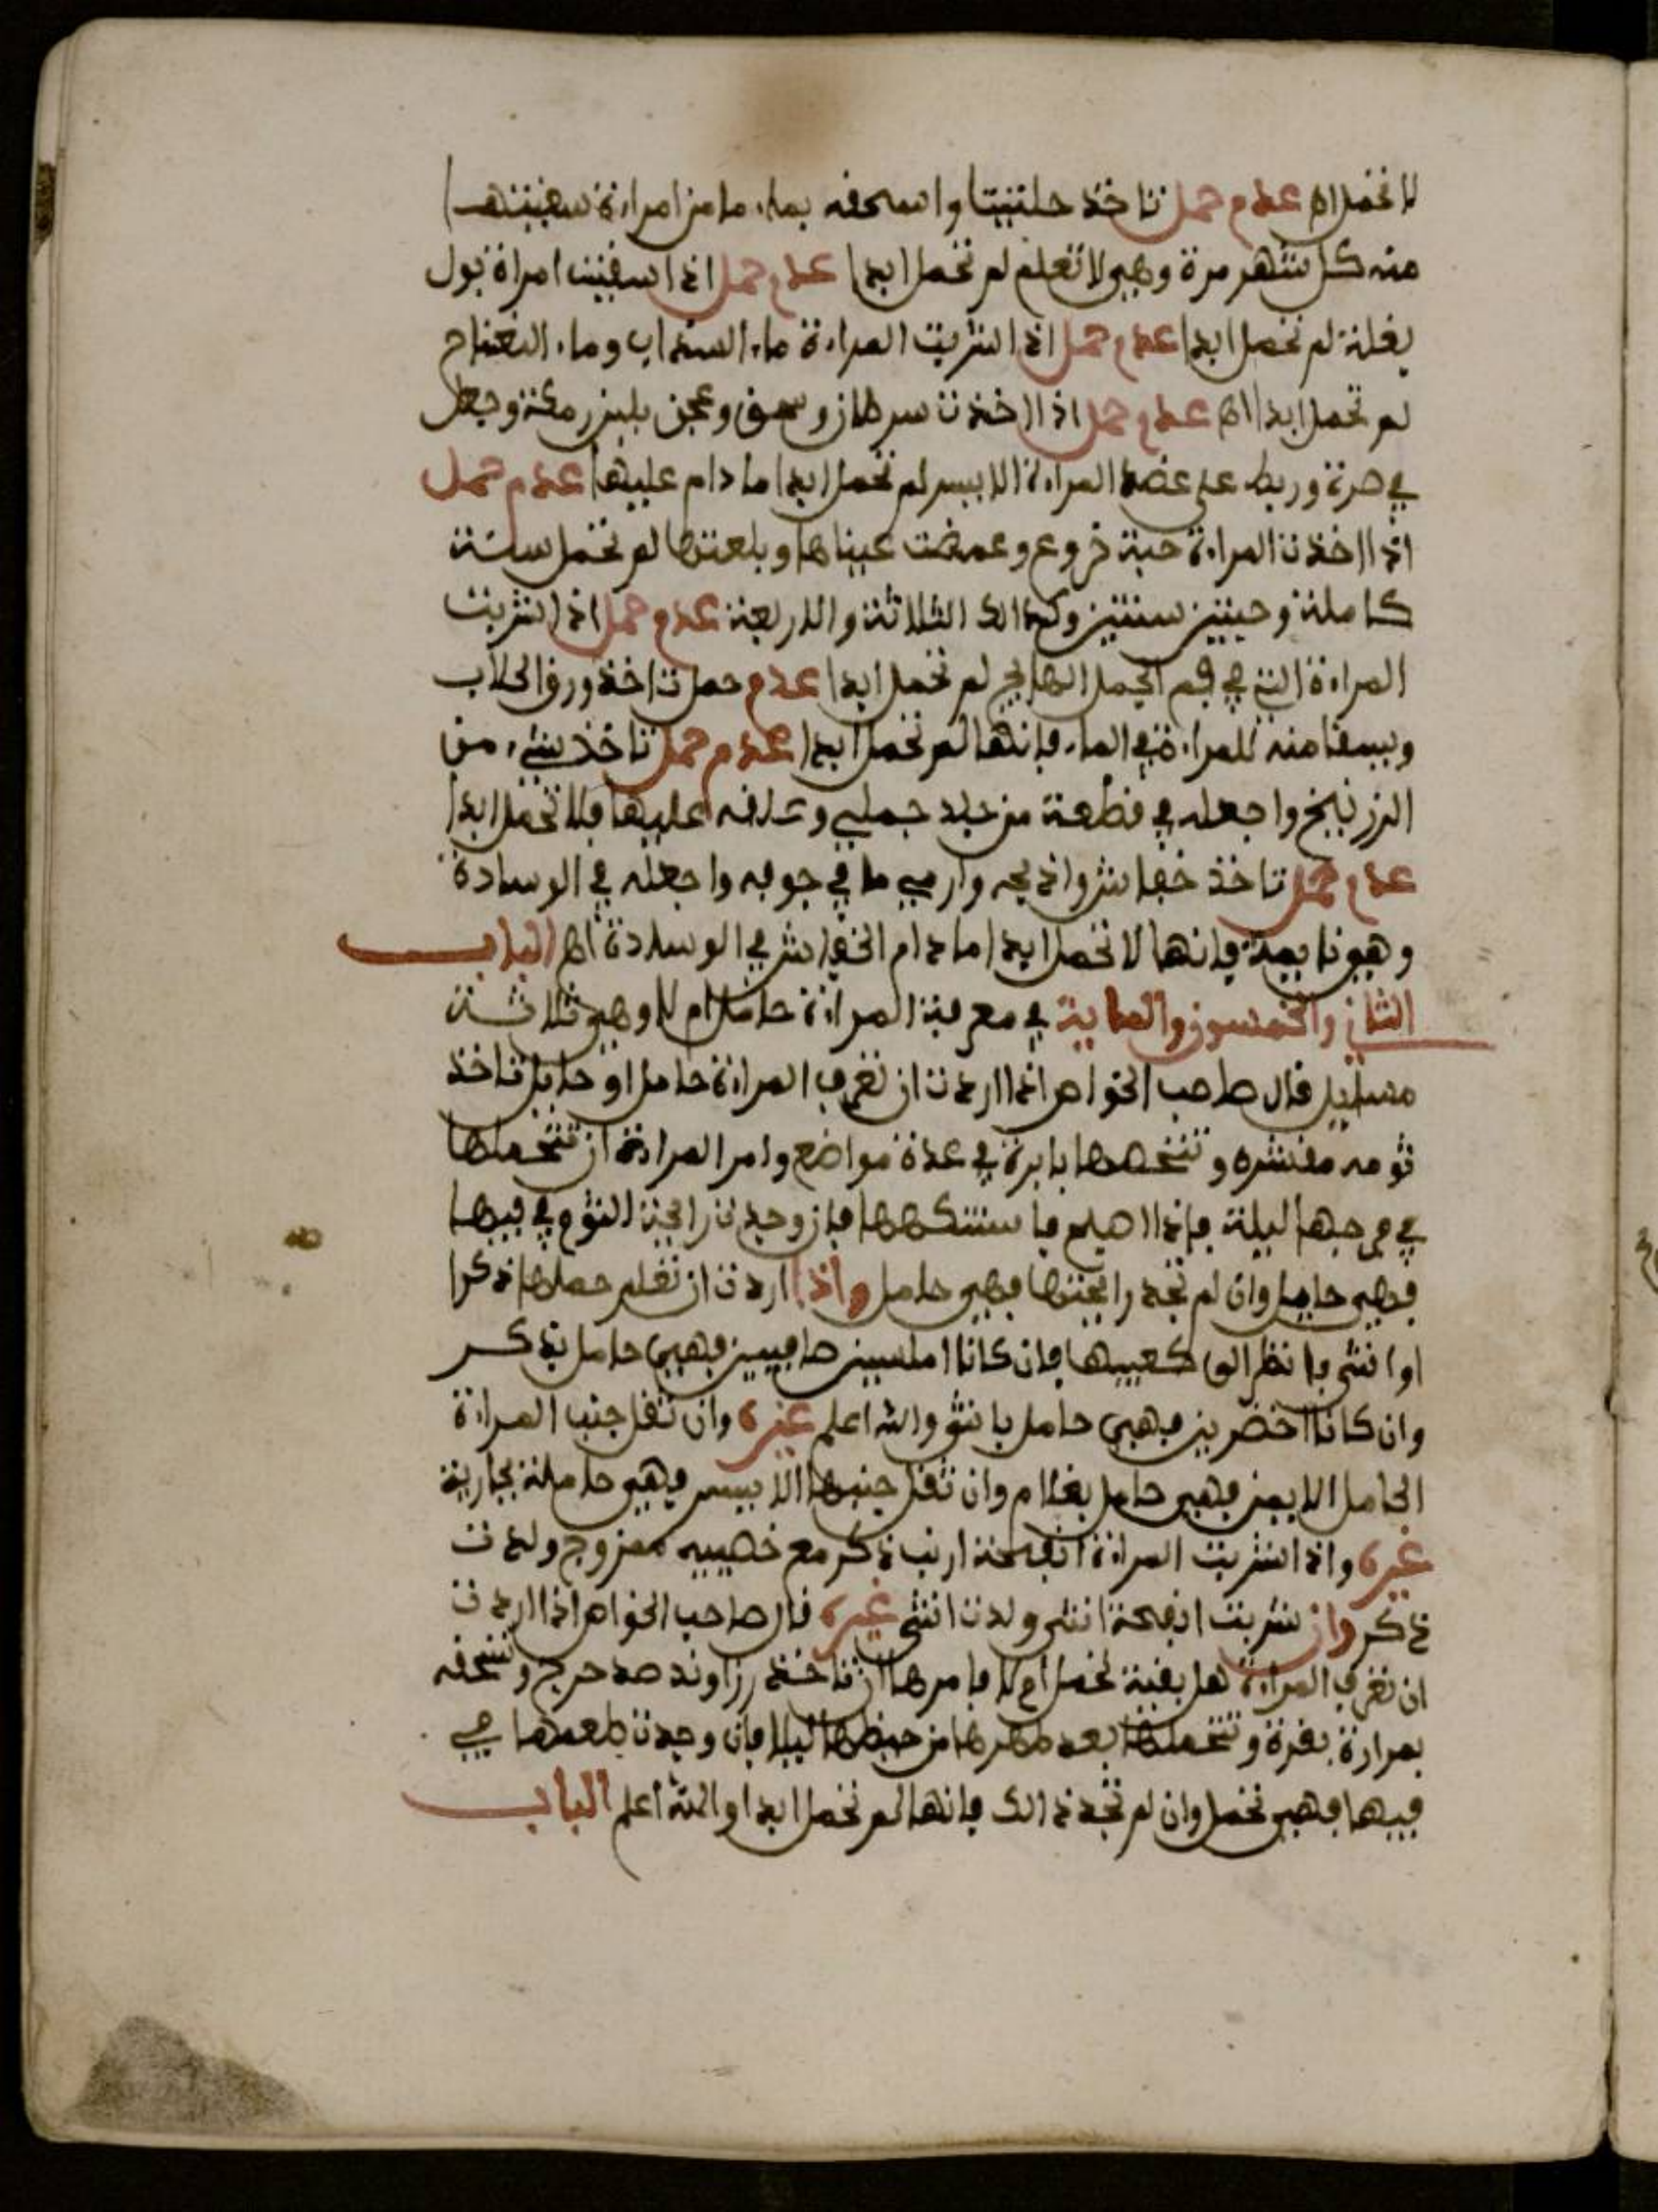 لا تحمل اه عدم حمل تاخذ حلتيتا واسحقه بماء ما من امراءة سقيتها
منه كل شهر مرة وهي لا تعلم لم تحمل ابدا عدم حمل اذا سقيت امراة بول
بغلة لم تحمل ابدا عدم حمل اذا شربت المراءة ماء السذاب وماء النعناع
لم تحمل ابدا اه عدم حمل اذا اخذت سرطان وسحق وعجن بلبن رمكة وجعل
في صرة وربط على عضد المراءة الايسر لم تحمل ابدا ما دام عليها عدم حمل
اذا اخذت المراءة حبة خروع وغمضت عيناها وبلعتها لم تحمل سنة
كاملة وحبتين سنتين وكذالك الثلاثة والاربعة عدم حمل اذا شربت
المراءة التي في فم الجمل الهايج لم تحمل ابدا عدم حمل تاخذ ورق الحلاب
ويسقا منه للمراءة في الماء فانها لم تحمل ابدا عدم حمل تاخذ شيء من
الزرنيخ واجعله في قطعة من جلد جملي وعلقه عليها فلا تحمل ابدا
عدم حمل تاخذ خفاش واذبحه وارمي ما في جوفه واجعله في الوسادة
وهي نايمة فانها لا تحمل ابدا ما دام الخفاش في الوسادة اه الباب
الثاني والخمسون والماية في معرفة المراءة حامل ام لا وهي ثلاثة
مسايل قال صاحب الخواص اذا اردت ان تعرف المراءة حامل او حايل تاخذ
ثومه مقشره وتنخصها بابرة في عدة مواضع وامر المراءة ان تتحملها
في فرجها ليلة فاذا اصبح فاستنكهها فان وجدت رايحة الثوم في فيها
فهي حايل وان لم تجد رايحتها فهي حامل واذا اردت ان تعلم حملها ذكرا
او انثى فانظر الى كعبيها فان كانا املسين صافيين فهي حامل بذكر
وان كانا اخضرين فهي حامل بانثى والله اعلم غيره وان ثقل جنب المراءة
الحامل الايمن فهي حامل بغلام وان ثقل جنبها الايسر فهي حاملة بجارية
غيره واذا شربت المراءة انفحة ارنب ذكر مع خصييه ممزوج ولدت
ذكر وان شربت انفحة انثى ولدت انثى غيره قال صاحب الخواص اذا اردت
ان تعرف المراءة هل بقية تحمل ام لا فامرها ان تاخذ رزاوند مدحرج وتسحقه
بمرارة بقرة وتتحملها بعد طهرها من حيظها ليلا فان وجدت طعمها في
فيها فهي تحمل وان لم تجد ذالك فانها لم تحمل ابدا والله اعلم الباب